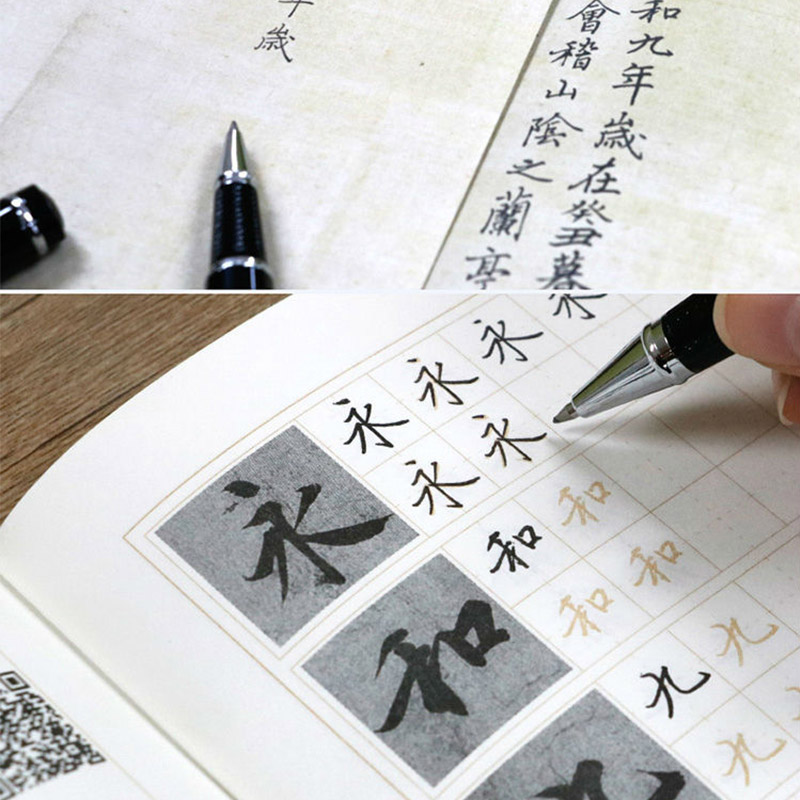 和九年歲在癸丑暮
會稽山陰之蘭亭
年歲
永
永永永永
永永
和
和和
和和
九九
九